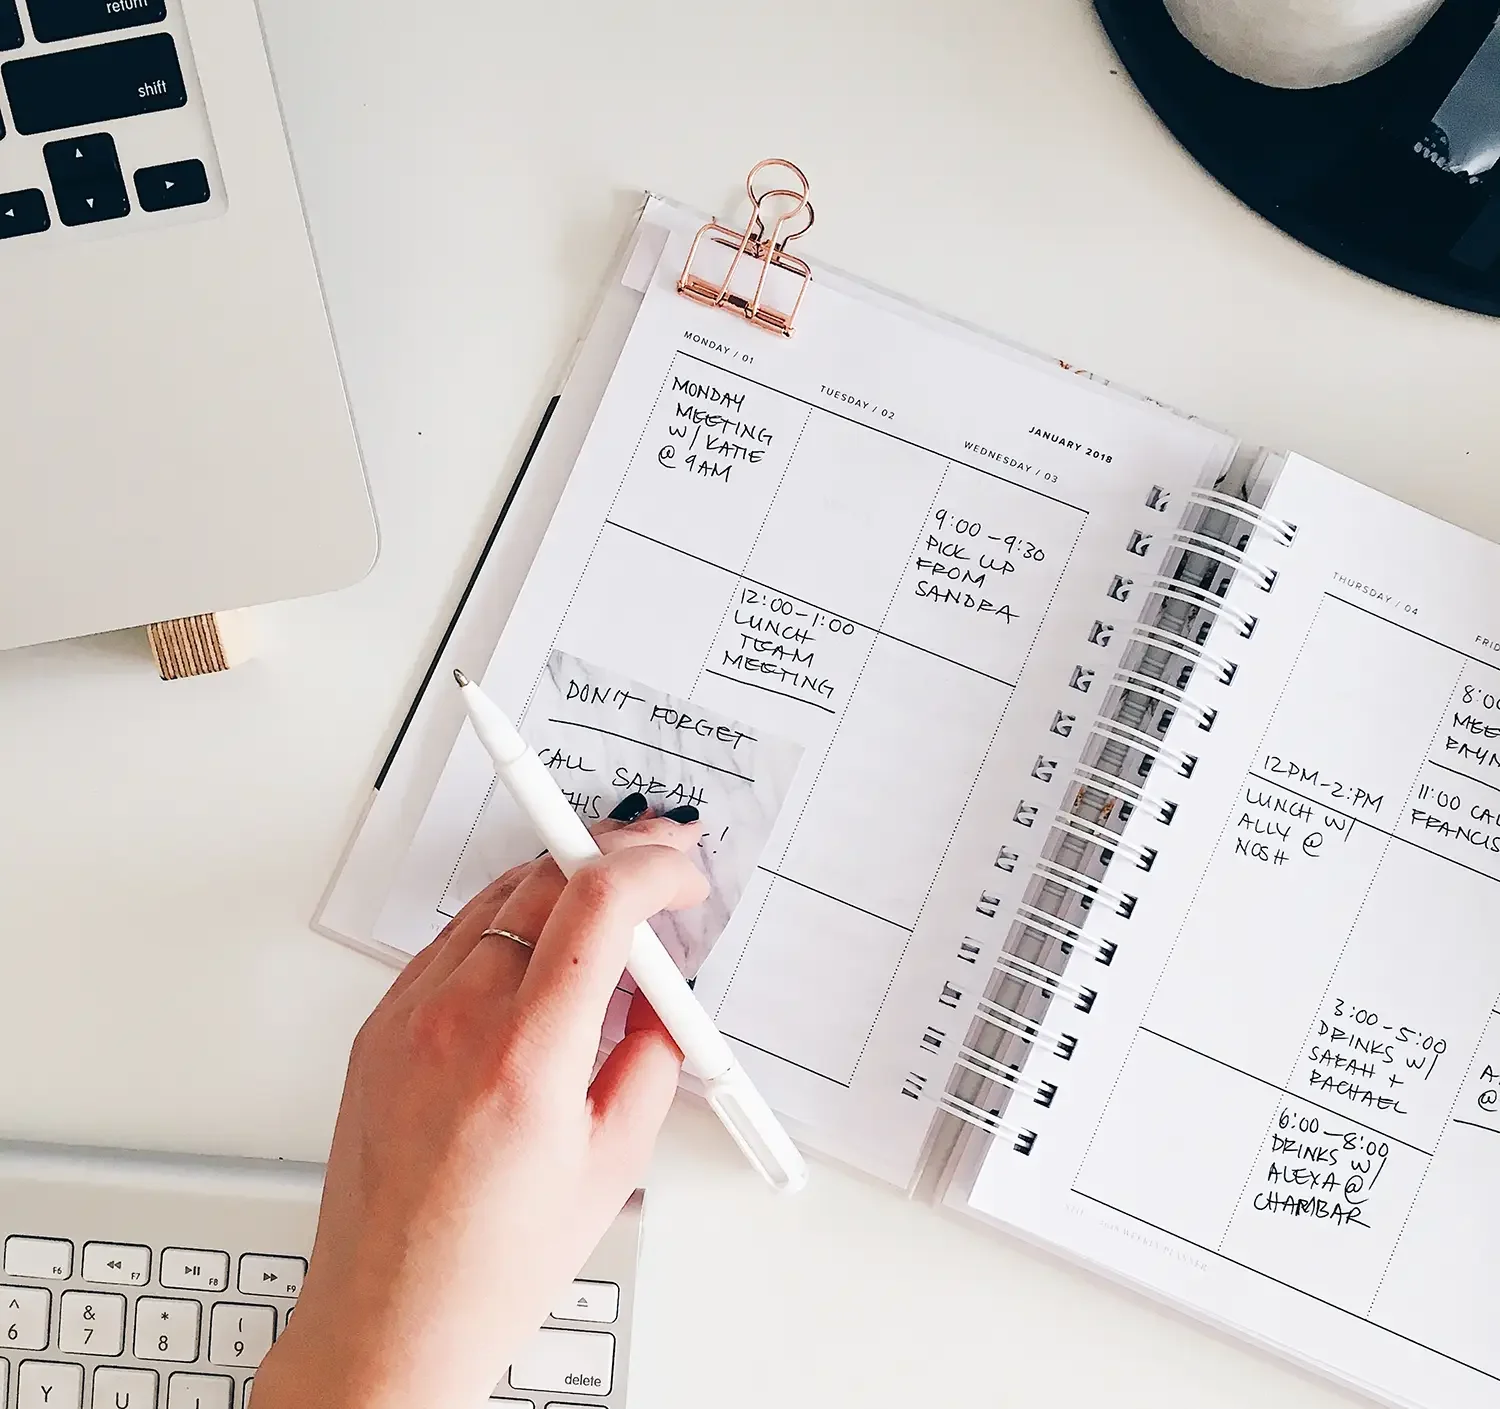 return
shift
MONDAY / 01
MONDAY
MEETING
W/ KATIE
@ 9AM
TUESDAY / 02
12:00-1:00
LUNCH
TEAM
MEETING
JANUARY 2018
WEDNESDAY / 03
9:00-9:30
PICK UP
FROM
SANDRA
DON'T FORGET
CALL SARAH
THIS
!
THURSDAY / 04
12PM-2:PM
LUNCH W/
ALLY @
NOSH
FRID
8:00
MEE
RAYN
11:00 CAL
FRANCIS
3:00-5:00
DRINKS W/
SARAH +
RACHAEL
6:00-8:00
DRINKS W/
ALEXA @
CHAMBAR
A
@
2018 WEEKLY PLANNER
F6
F7
F8
F9
^
6
&
7
*
8
(
9
Y
U
delete